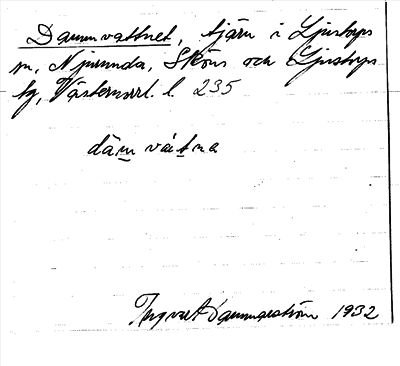 Dammvattnet, tjärn i Ljustorps
sn, Njurunda, Sköns och Ljustorps
tg, Västernorrl. l. 235
dȧm vát na
Ingvar Dammeström 1932